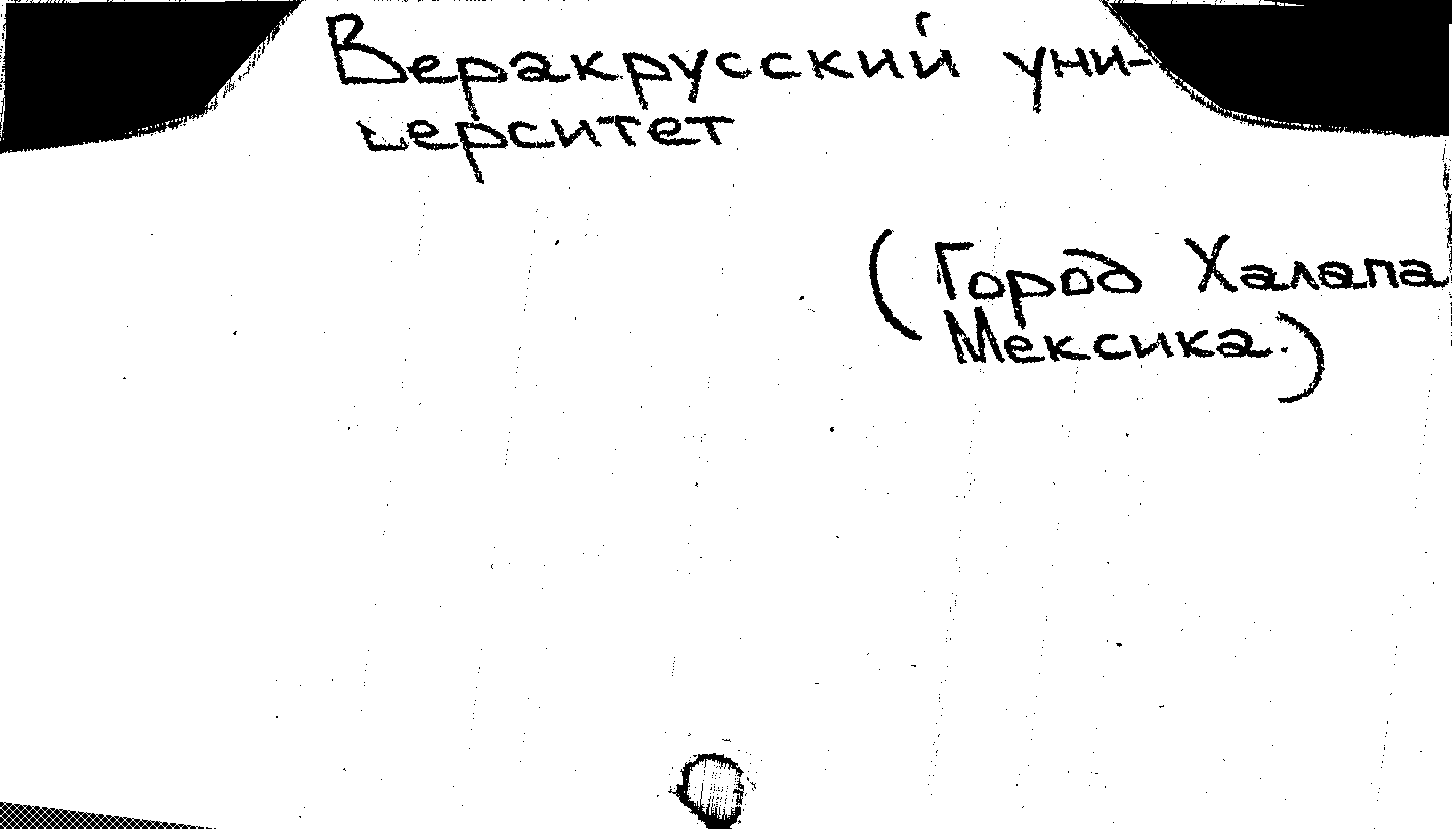 Веракрусский уни-
верситет
(Город Халапа
Мексика.)